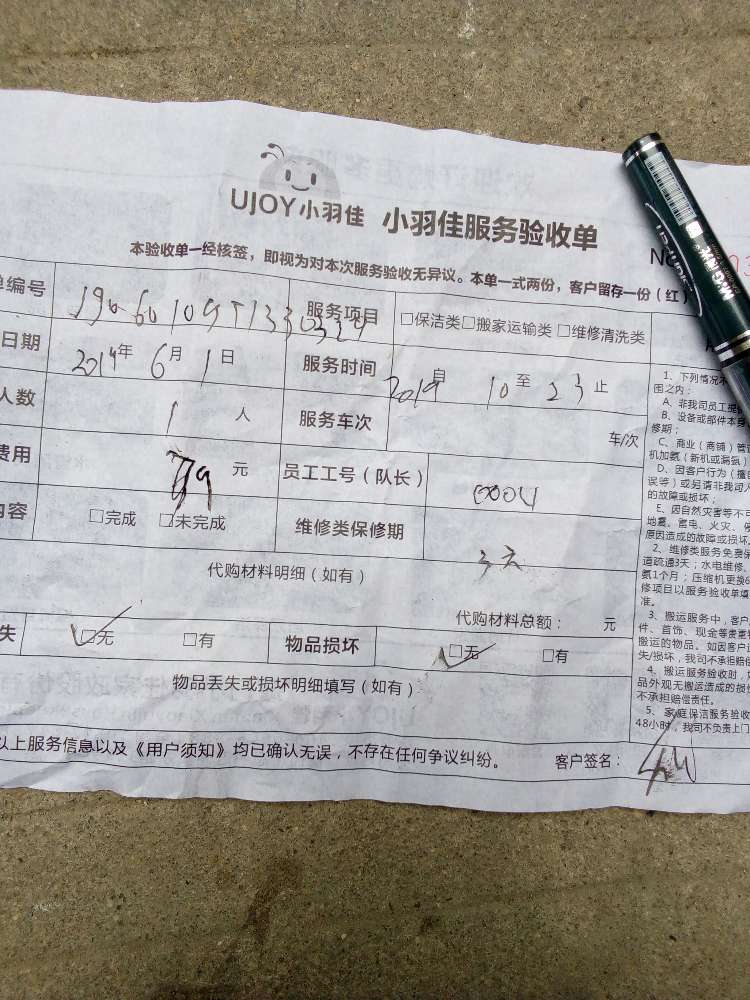 UJOY小羽佳 小羽佳服务验收单
No
本验收单一经核签，即视为对本次服务验收无异议。本单一式两份，客户留存一份（红）
单编号 服务项目 □保洁类□搬家运输类□维修清洗类
日期 年6月1日 服务时间 2019自 10至23止
人数 1人 服务车次 车/次
费用 元 员工工号（队长）
内容 □完成 □未完成 维修类保修期 3天
代购材料明细（如有）
代购材料总额： 元
失 ☑无 □有 物品损坏 ☑无 □有
物品丢失或损坏明细填写（如有）
以上服务信息以及《用户须知》均已确认无误，不存在任何争议纠纷。 客户签名：
1、下列情况不
围之内：
A、非我司员工提供
B、设备或部件本身
修期；
C、商业（商铺）管道
机加氨（新机或漏氨）
D、因客户行为（擅自
误等）或另请非我司人
的故障或损坏；
E、因自然灾害等不可
地震、雷电、火灾、
原因造成的故障或损坏。
2、维修类服务免费保
道疏通3天；水电维修、
氨1个月；压缩机更换6
修项目以服务验收单填
准。
3、搬运服务中，客户
件、首饰、现金等贵重
搬运的物品。如因客户
失/损坏，我司不承担赔偿
4、搬运服务验收时，
品外观无搬运造成的损
不承担赔偿责任。
5、家庭保洁服务验收
48小时，我司不负责上门